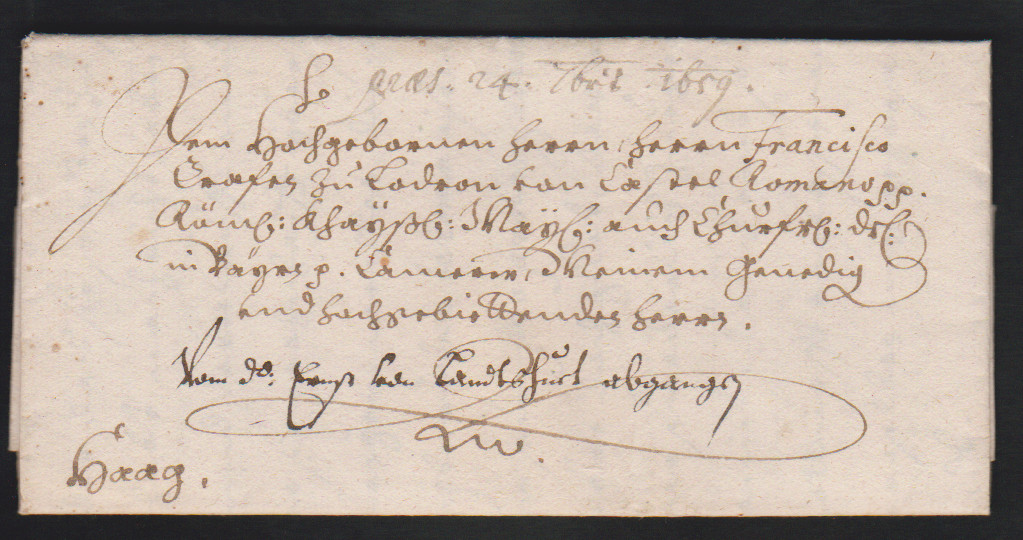 præs. 24. 7bris 1659.
Dem Hochgebornen Herrn, Herrn Francisco
Grafen zu Lodron von Castel Romano pp.
Röm: Khayß: May: auch Churfr: dl:
in Bayrn p. Camerer, Meinem Genedig
und hochgebiettenden Herrn.
Vom dº: Ernst von Landtshuet abgangen
Haag.